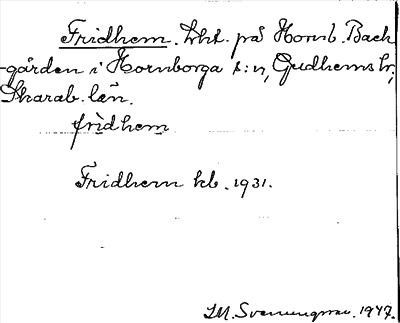 Fridhem. lht. på Hornb. Back
-gården i Hornborga s:n, Gudhems hr,
Skarab. län.
frìdhem
Fridhem kb. 1931.
I.M. Svenungsson. 1947.